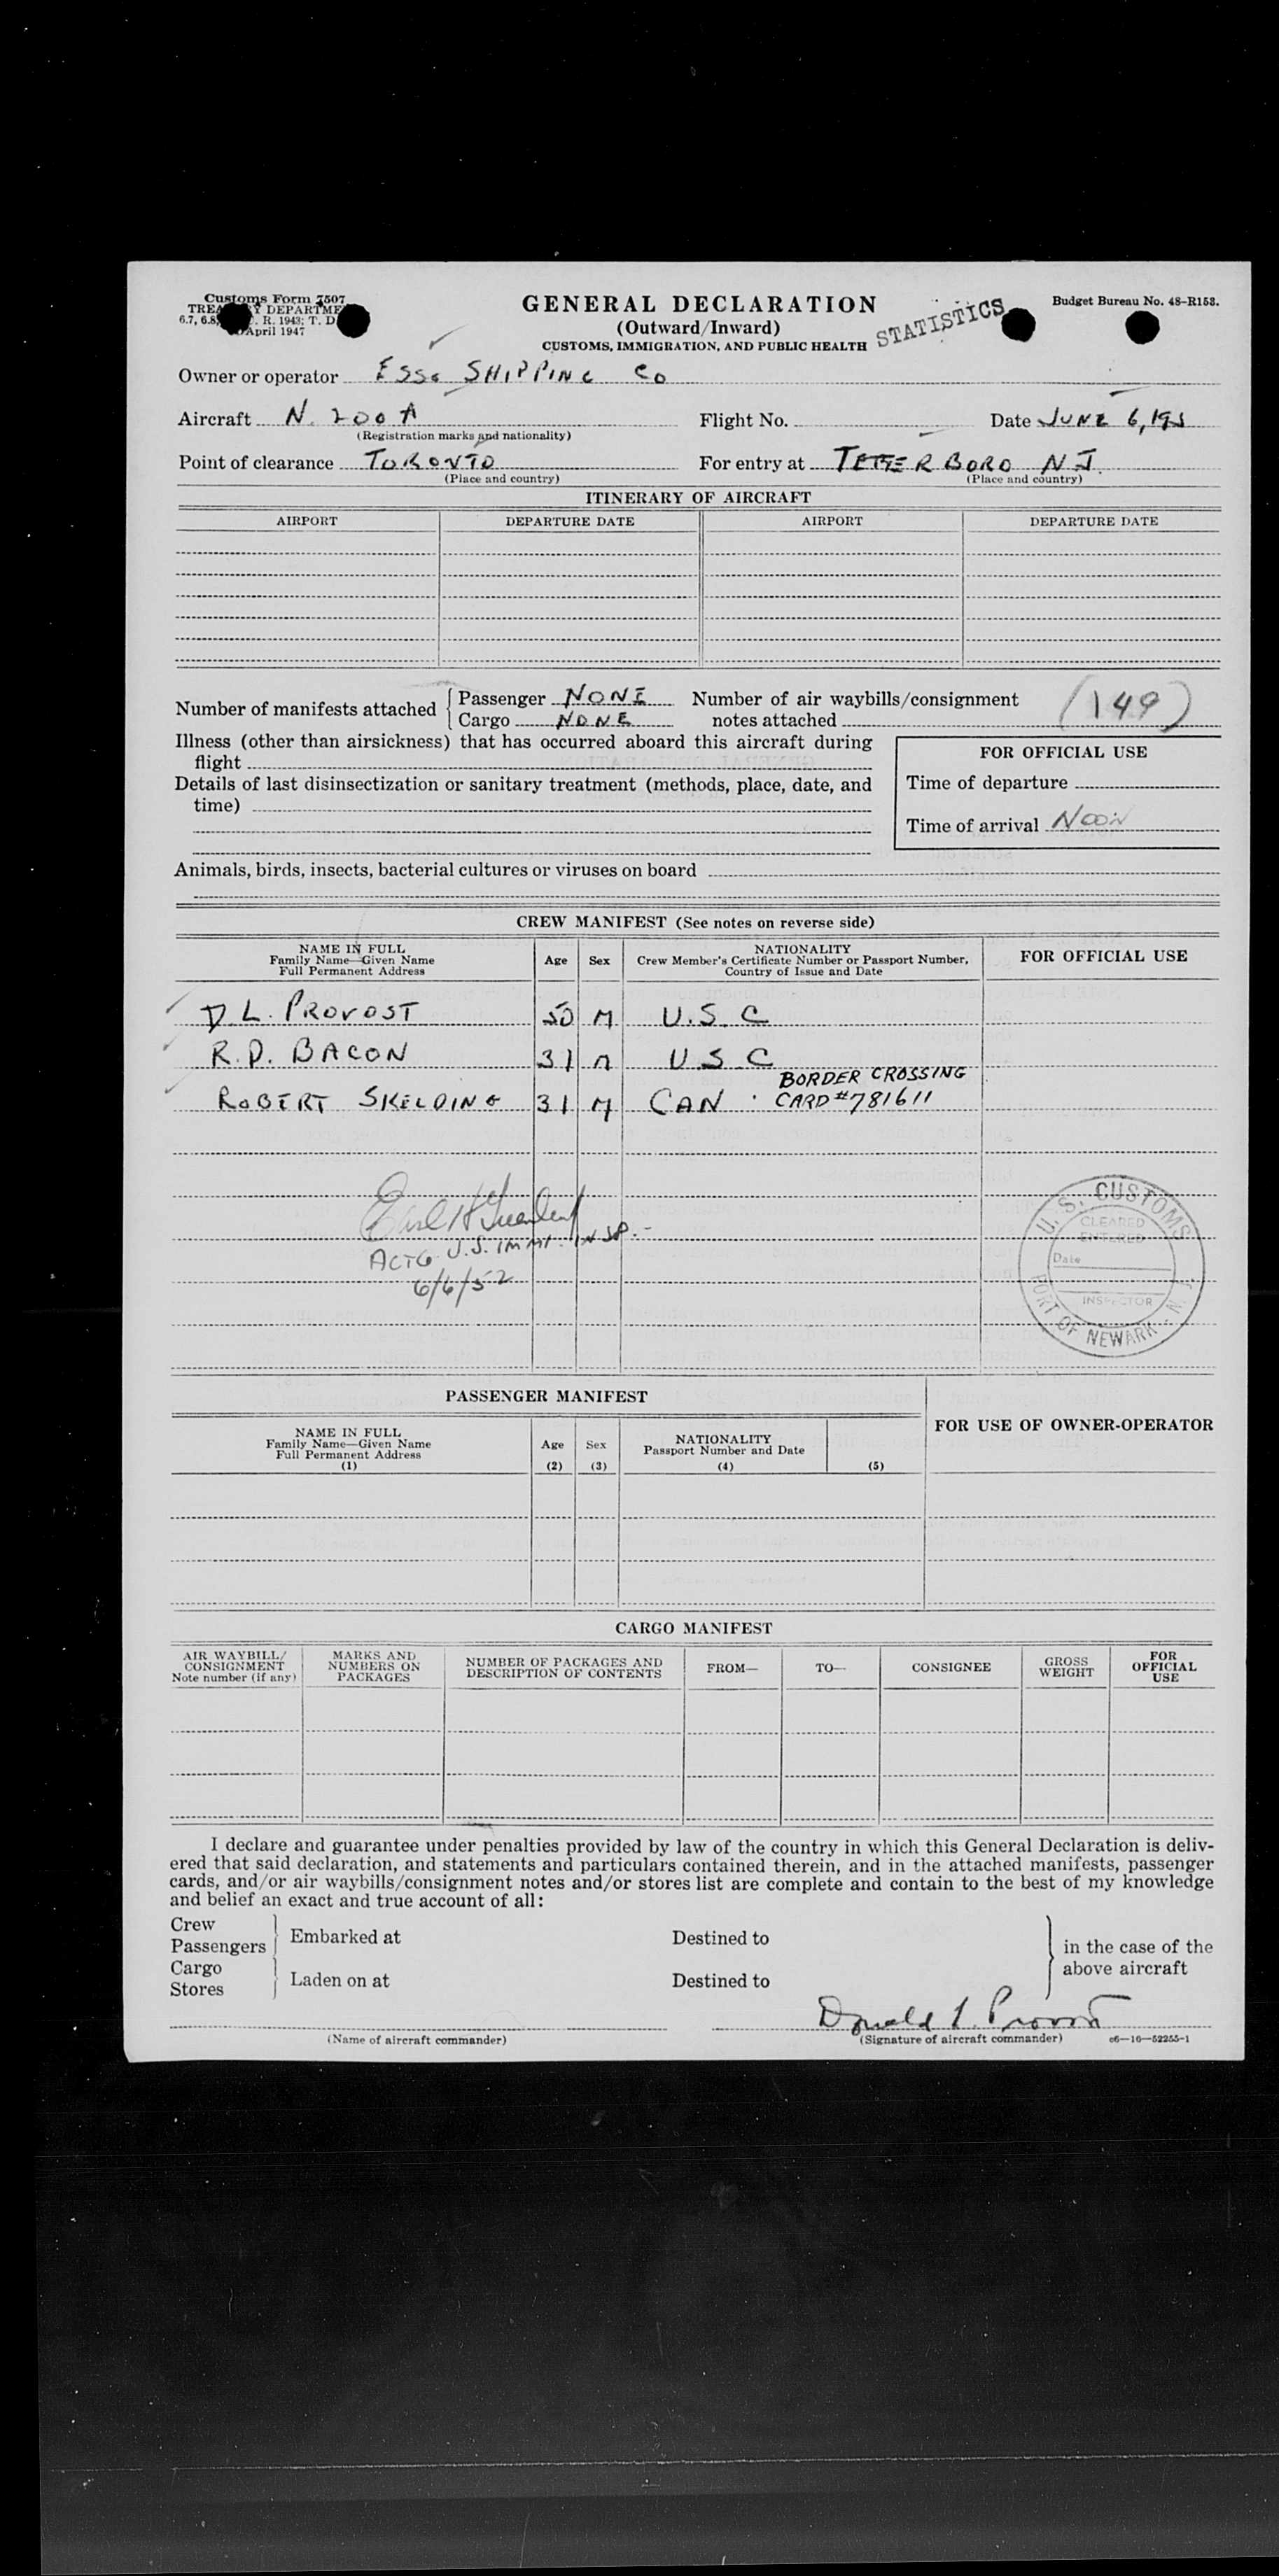 Customs Form 7507
TREA Y DEPARTME
6.7, 6.8, . R. 1943; T. D
April 1947
GENERAL DECLARATION
(Outward/Inward)
CUSTOMS, IMMIGRATION, AND PUBLIC HEALTH
STATISTICS
Budget Bureau No. 48-R153.
Owner or operator ESSO SHIPPING CO
Aircraft N. 200A Flight No. Date JUNE 6, 195
(Registration marks and nationality)
Point of clearance TORONTO For entry at TETERBORO N J.
(Place and country) (Place and country)
ITINERARY OF AIRCRAFT
AIRPORT DEPARTURE DATE AIRPORT DEPARTURE DATE
Number of manifests attached Passenger NONE Number of air waybills/consignment (149)
Cargo NONE notes attached
Illness (other than airsickness) that has occurred aboard this aircraft during
flight
Details of last disinsectization or sanitary treatment (methods, place, date, and
time)
FOR OFFICIAL USE
Time of departure
Time of arrival NOON
Animals, birds, insects, bacterial cultures or viruses on board
CREW MANIFEST (See notes on reverse side)
NAME IN FULL
Family Name—Given Name
Full Permanent Address
Age Sex
NATIONALITY
Crew Member's Certificate Number or Passport Number,
Country of Issue and Date
FOR OFFICIAL USE
D. L. PROVOST 50 M U.S.C
R.D. BACON 31 M U S C
ROBERT SKELDING 31 M CAN BORDER CROSSING
CARD #781611
Earl H
ACTG U.S. IMMI. INSP.-
6/6/52
U. S. CUSTOMS
CLEARED
ENTERED
Date
INSPECTOR
PORT OF NEWARK - N. J.
PASSENGER MANIFEST
FOR USE OF OWNER-OPERATOR
NAME IN FULL
Family Name—Given Name
Full Permanent Address
(1)
Age
(2)
Sex
(3)
NATIONALITY
Passport Number and Date
(4) (5)
CARGO MANIFEST
AIR WAYBILL/
CONSIGNMENT
Note number (if any)
MARKS AND
NUMBERS ON
PACKAGES
NUMBER OF PACKAGES AND
DESCRIPTION OF CONTENTS
FROM—
TO—
CONSIGNEE
GROSS
WEIGHT
FOR
OFFICIAL
USE
I declare and guarantee under penalties provided by law of the country in which this General Declaration is deliv-
ered that said declaration, and statements and particulars contained therein, and in the attached manifests, passenger
cards, and/or air waybills/consignment notes and/or stores list are complete and contain to the best of my knowledge
and belief an exact and true account of all:
Crew
Passengers Embarked at Destined to
Cargo
Stores Laden on at Destined to
in the case of the
above aircraft
Donald L. Provost
(Name of aircraft commander) (Signature of aircraft commander) c6—16—52255-1